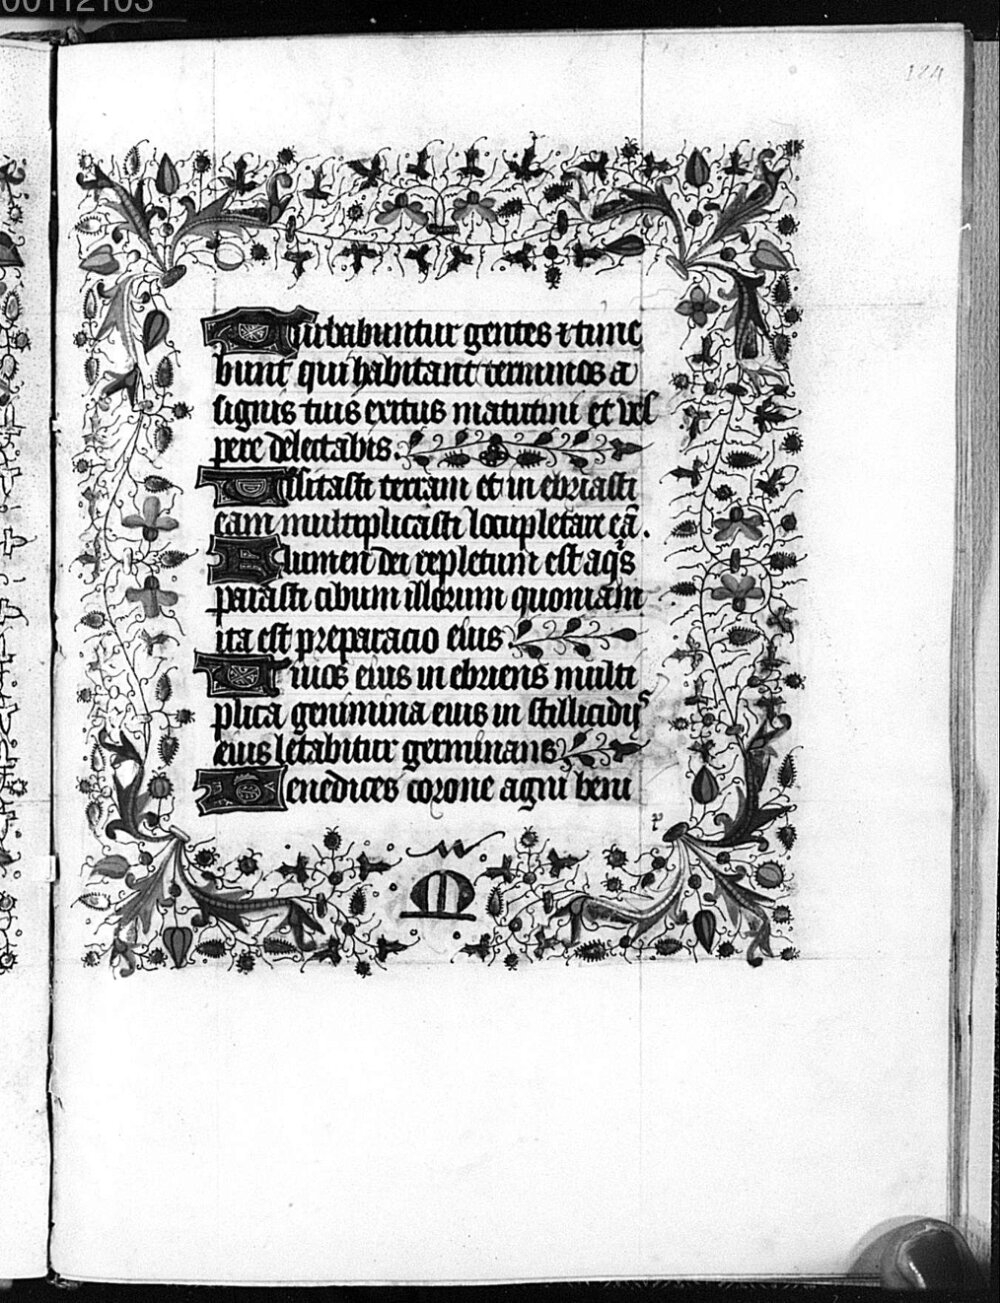 00112103
124
Turbabuntur gentes ⁊ time
bunt qui habitant terminos a
signis tuis exitus matutini et ves
pere delectabis.
Uisitasti terram et in ebriasti
eam multiplicasti locupletare eã.
Flumen dei repletum est aqͥs
parasti cibum illorum quoniam
ita est preparacio eius
Riuos eius in ebriens multi
plica genimina eius in stillicidijs
eius letabitur germinans
Benedices corone agni beni